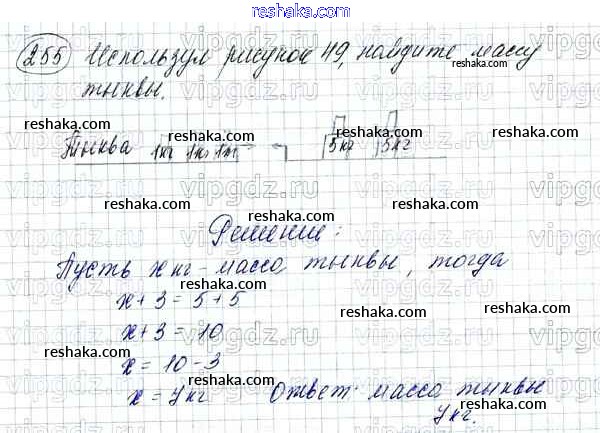 reshaka.com
255 Используя рисунок 49, найдите массу
тыквы.
Тыква 1кг 1кг 1кг 5кг 5кг
Решение:
Пусть x кг - масса тыквы, тогда
x + 3 = 5 + 5
x + 3 = 10
x = 10 - 3
x = 7 кг Ответ: масса тыквы
7 кг.
reshaka.com